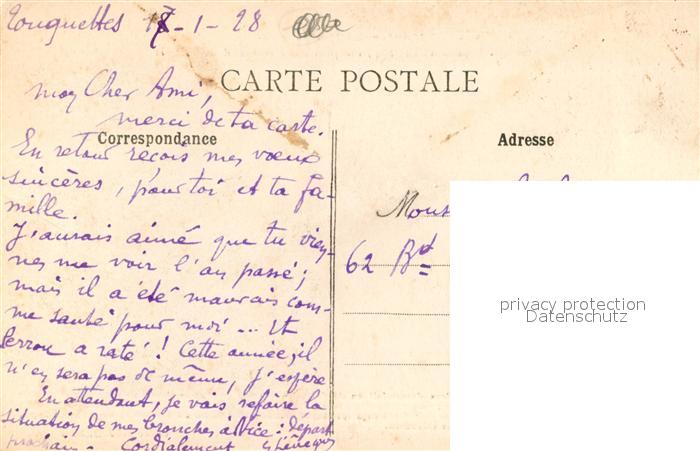 Touquettes 17-1-28
CARTE POSTALE
mon Cher Ami,
merci de ta carte.
Correspondance
Adresse
En retour reçois mes voeux
sincères, pour toi et ta fa-
mille.
J'aurais aimé que tu vien-
nes me voir l'an passé;
mais il a été mauvais com-
me santé pour moi... Et
a raté! Cette année, il
n'en sera pas de même, j'espère
En attendant, je vais refaire la
situation de mes bronches à Vice: départ
prochain - Cordialement
62 Bd
privacy protection
Datenschutz